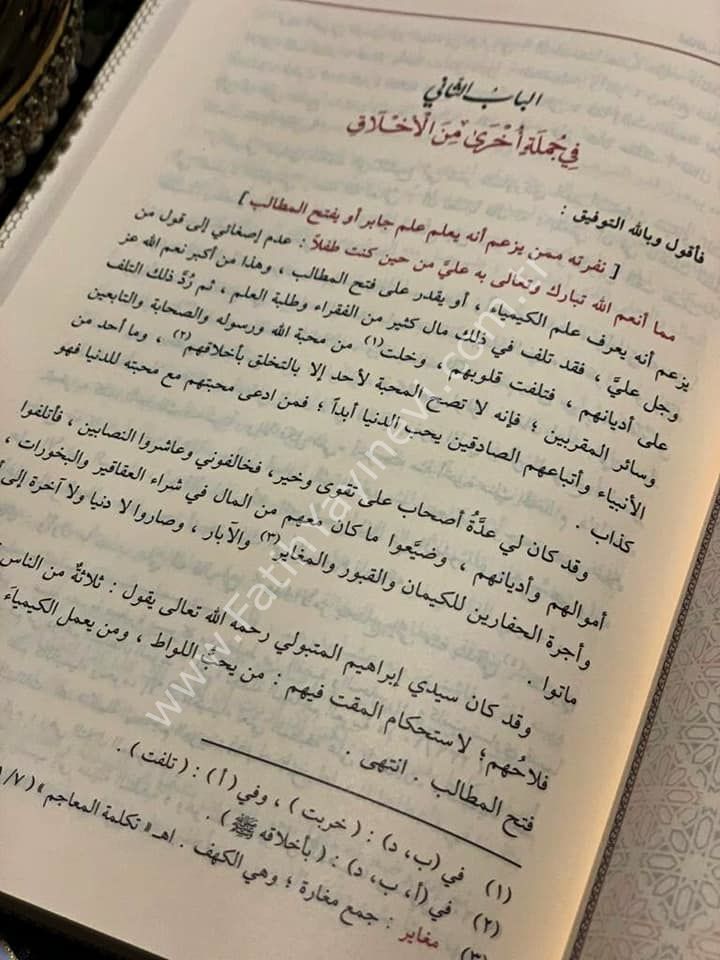 الباب الثاني
في جُملَةٍ أُخْرَىٰ مِنَ الأَخْلَاقِ
فأقول وبالله التوفيق :
[ نفرته ممن يزعم أنه يعلم علم جابر أو يفتح المطالب ]
مما أنعم الله تبارك وتعالى به عليَّ من حين كنت طفلاً : عدم إصغائي إلى قول من
يزعم أنه يعرف علم الكيمياء ، أو يقدر على فتح المطالب ، وهذا من أكبر نعم الله عز
وجل عليَّ ، فقد تلف في ذلك مال كثير من الفقراء وطلبة العلم ، ثم رُدَّ ذلك التلف
على أديانهم ، فتلفت قلوبهم ، وخلت(١) من محبة الله ورسوله والصحابة والتابعين
وسائر المقربين ؛ فإنه لا تصح المحبة لأحد إلا بالتخلق بأخلاقهم(٢) ، وما أحد من
الأنبياء وأتباعهم الصادقين يحب الدنيا أبداً ؛ فمن ادعى محبتهم مع محبته للدنيا فهو
كذاب .
وقد كان لي عدَّةُ أصحاب على تقوى وخير، فخالفوني وعاشروا النصابين ، فأتلفوا
أموالهم وأديانهم ، وضيَّعوا ما كان معهم من المال في شراء العقاقير والبخورات ،
وأجرة الحفارين للكيمان والقبور والمغاير(٣) والآبار ، وصاروا لا دنيا ولا آخرة إلى أن
ماتوا .
وقد كان سيدي إبراهيم المتبولي رحمه الله تعالى يقول : ثلاثةٌ من الناس
فلاحُهم؛ لاستحكام المقت فيهم : من يحبُّ اللواط ، ومن يعمل الكيمياءَ
فتح المطالب . انتهى .
(١) في (ب، د) : ( خربت ) ، وفي ( أ ) : ( تلفت ) .
(٢) في ( أ، ب، د) : ( بأخلاقه ﷺ ) .
(٣) مغاير : جمع مغارة ؛ وهي الكهف . اهـ « تكلمة المعاجم » ( ٧/
www.FatihYayinevi.com.tr